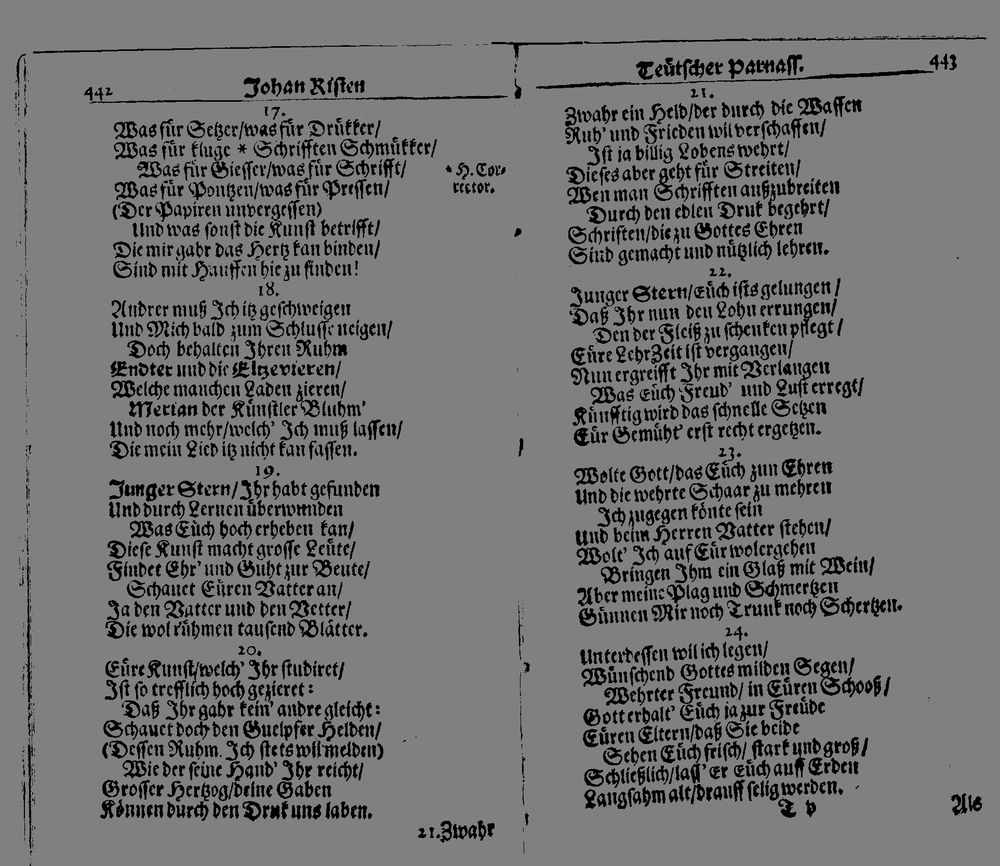 442 Johan Risten
17.
Was für Setzer/was für Drükker/
Was für kluge * Schrifften Schmükker/
Was für Giesser/was für Schrifft/
* H. Cor-
rector.
Was für Pontzen/was für Pressen/
(Der Papiren unvergessen)
Und was sonst die Kunst betrifft/
Die mir gahr das Hertz kan binden/
Sind mit Hauffen hie zu finden!
18.
Andrer muß Jch itz geschweigen
Und Mich bald zum Schlusse neigen/
Doch behalten Jhren Ruhm
Endter und die Eltzevieren/
Welche manchen Laden zieren/
Merian der Künstler Bluhm'
Und noch mehr/welch' Jch muß lassen/
Die mein Lied itz nicht kan fassen.
19.
Junger Stern/Jhr habt gefunden
Und durch Lernen überwunden
Was Eüch hoch erheben kan/
Diese Kunst macht grosse Leüte/
Findet Ehr' und Guht zur Beute/
Schauet Eüren Vatter an/
Ja den Vatter und den Vetter/
Die wol rühmen tausend Blätter.
20.
Eüre Kunst/welch' Jhr studiret/
Jst so trefflich hoch gezieret:
Daß Jhr gahr kein' andre gleicht:
Schauet doch den Guelpfer Helden/
(Dessen Ruhm Jch stets wil melden)
Wie der seine Hand' Jhr reicht/
Grosser Hertzog/deine Gaben
Können durch den Druk uns laben.
21. Zwahr
Teütscher Parnass. 443
21.
Zwahr ein Held/der durch die Waffen
Ruh' und Frieden wil verschaffen/
Jst ja billig Lobens wehrt/
Dieses aber geht für Streiten/
Wen man Schrifften außzubreiten
Durch den edlen Druk begehrt/
Schriften/die zu Gottes Ehren
Sind gemacht und nützlich lehren.
22.
Junger Stern/Eüch ists gelungen/
Daß Jhr nun den Lohn errungen/
Den der Fleiß zu schenken pflegt/
Eüre LehrZeit ist vergangen/
Nun ergreifft Jhr mit Verlangen
Was Eüch Freud' und Lust erregt/
Künfftig wird das schnelle Setzen
Eür Gemüht' erst recht ergetzen.
23.
Wolte Gott/das Eüch zun Ehren
Und die wehrte Schaar zu mehren
Jch zugegen könte sein
Und beim Herren Vatter stehen/
Wolt' Jch auf Eür wolergehen
Bringen Jhm ein Glaß mit Wein/
Aber meine Plag und Schmertzen
Günnen Mir noch Trunk noch Schertzen.
24.
Unterdessen wil ich legen/
Wünschend Gottes milden Segen/
Wehrter Freund/ in Eüren Schooß/
Gott erhalt' Eüch ja zur Freüde
Eüren Eltern/daß Sie beide
Sehen Eüch frisch/ stark und groß/
Schließlich/lass' Er Eüch auff Erden
Langsahm alt/drauff selig werden.
T v Als